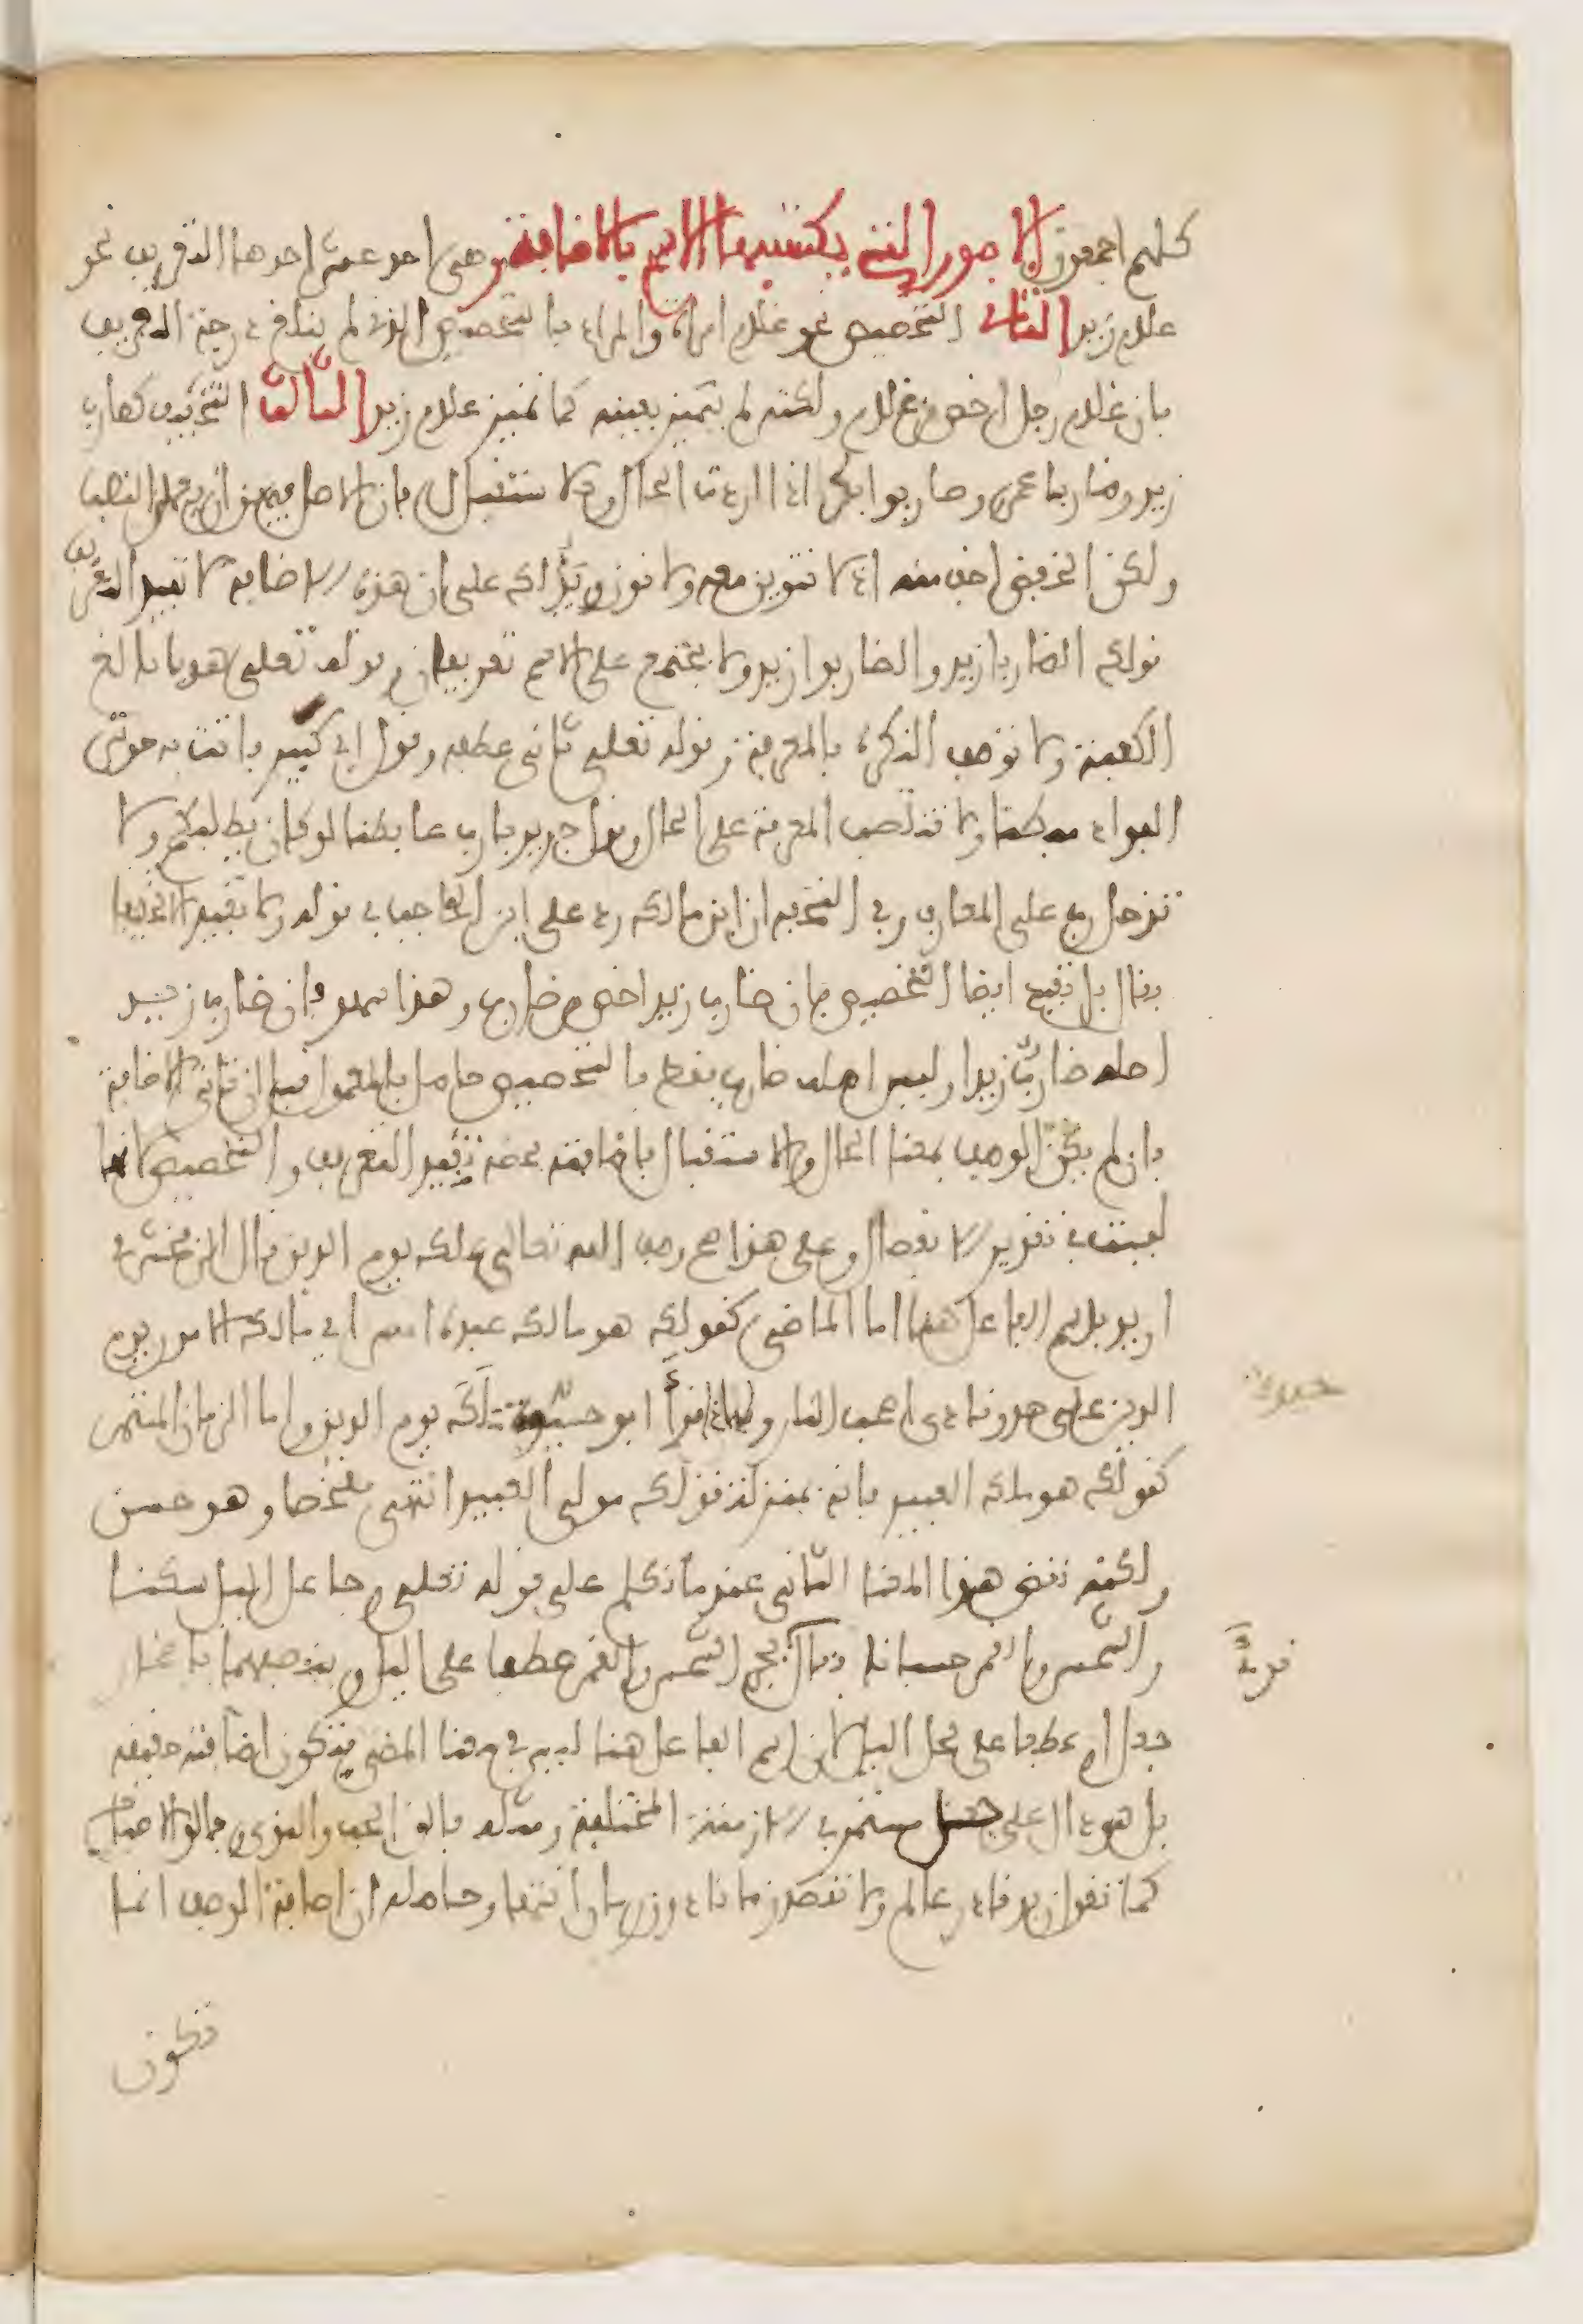 كلهم اجمعون الامور التي يكتسبها الاسم بالاضافة وهي احد عشر احدها التعريف نحو
غلام زيد الثاني التخصيص نحو غلام امراة والمراد بالتخصيص الذي لم يبلغ درجة التعريف
فان غلام رجل اخص من غلام ولكنه لم يتميز بعينه كما تميز غلام زيد الثالث التخفيف كضارب
زيد وضاربا عمرو وضاربوا بكر اذا اردت الحال والاستقبال فان الاصل فيهن ان يعملن النصب
ولكن الخفض اخف منه اذ لا تنوين معه ولا نون ويدلك على ان هذه الاضافة لا تفيد التعريف
قولك الضاربا زيد والضاربوا زيد ولا يجتمع على الاسم تعريفان وقوله تعلى هديا بالغ
الكعبة ولا توصف النكرة بالمعرفة وقوله تعلى ثاني عطفه وقول ابي كبير فاتت به حوش
الفواد مبطنا ولا تنتصب المعرفة على الحال وقول جرير يا رب غابطنا لو كان يطلبكم ولا
تدخل رب على المعارف وفي التحفة ان ابن مالك رد على ابن الحاجب في قوله ولا تفيد الا تخفيفا
فقال بل تفيد ايضا التخصيص فان ضارب زيد اخص من ضارب وهذا سهو فان ضارب زيد
اصله ضارب زيدا وليس اصله ضارب فقط فالتخصيص حاصل بالمعمول قبل ان تاتي الاضافة
فان لم يكن الوصف بمعنا الحال والاستقبال فاضافته محضة تفيد التعريف والتخصيص لانها
ليست في تقدير الانفصال وعلى هذا صح وصف الله تعالى بملك يوم الدين قال الزمخشري
اريد باسم الفاعل هنا اما الماضي كقولك هو مالك عبده امس اي مالك الامور يوم
الدين على حد ونادى اصحب النار ولهذا قرأ ابو حنيفة ملك يوم الدين واما الزمان المستمر
كقولك هو ملك العبيد فانه بمنزلة قولك مولى العبيد انتهى ملخصا وهو حسن
ولكنه نقض هذا المعنا الثاني عندما تكلم على قوله تعلى وجاعل اليل سكنا
والشمس والقمر حسبانا فقال بجر الشمس والقمر عطفا على اليل وبنصبهما باضمار
جعل او عطفا على محل اليل لان اسم الفاعل هنا ليس في معنا المضي فتكون اضافته حقيقة
بل هو دال على جعل مستمر في الازمنة المختلفة ومثله فالق الحب والنوى وفالق الاصباح
كما تقول زيد قادر عالم ولا تقصد زمانا دون زمان انتها وحاصله ان اضافة الوصف انما
قوله
تكون